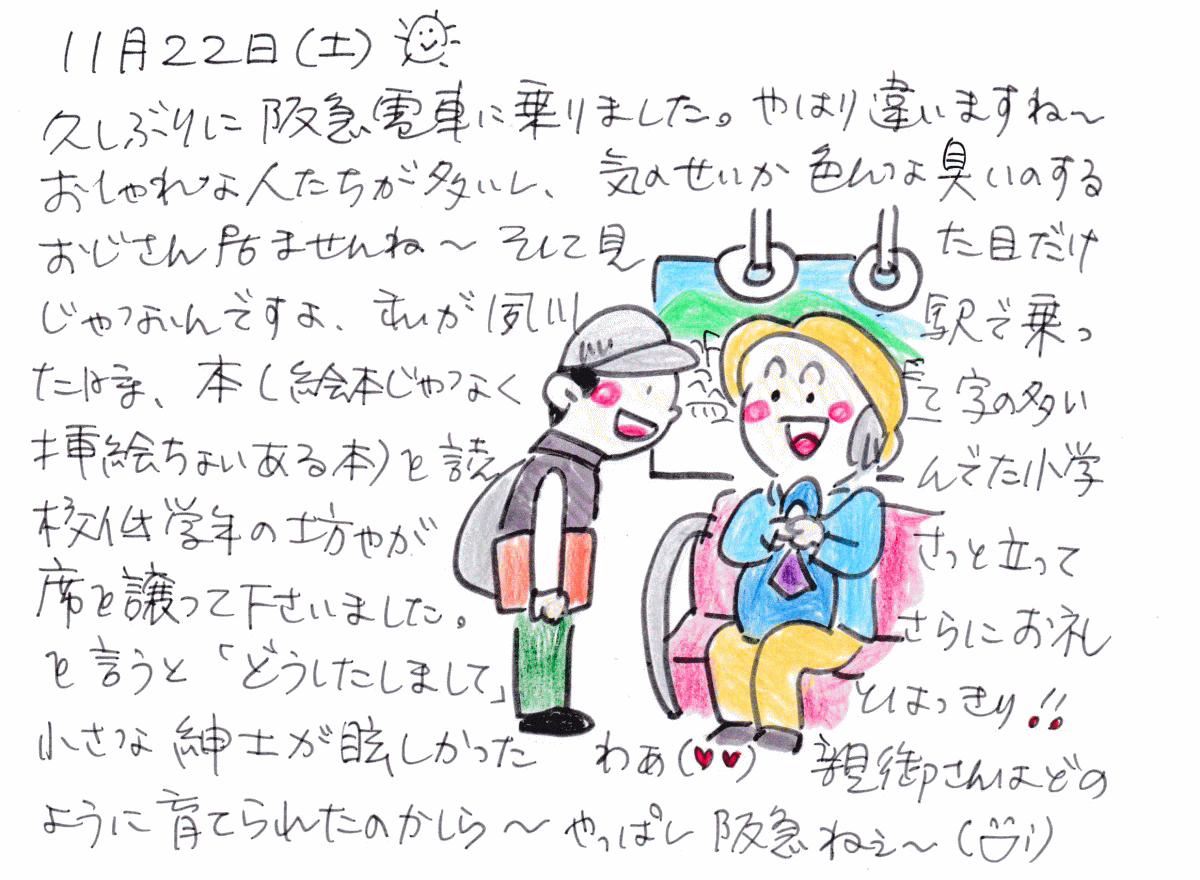 11月22日(土)
久しぶりに阪急電車に乗りました。やはり違いますね〜
おしゃれな人たちが多いし、気のせいか色んな臭いのする
おじさん居ませんね〜そして見た目だけ
じゃないんですよ、私が夙川駅で乗っ
たとき、本(絵本じゃなくて字の多い
挿絵ちょいある本)を読んでた小学
校低学年の坊やがさっと立って
席を譲って下さいました。さらにお礼
を言うと「どうしたしまして」とはっきり!!
小さな紳士が眩しかった わぁ(♥♥) 親御さんはどの
ように育てられたのかしら〜やっぱし阪急ねぇ〜